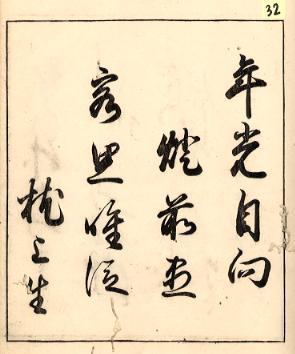 32
年光自向
燈前盡
客思唯從
枕上生